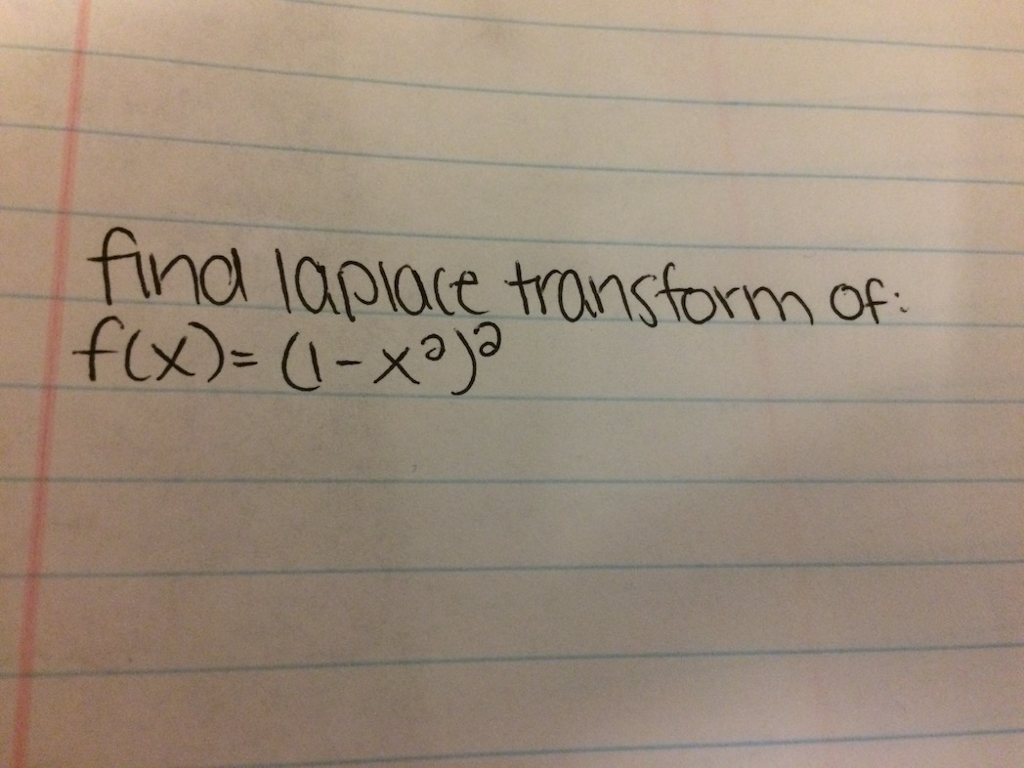 find laplace transform of:
f(x)= (1-x²)²